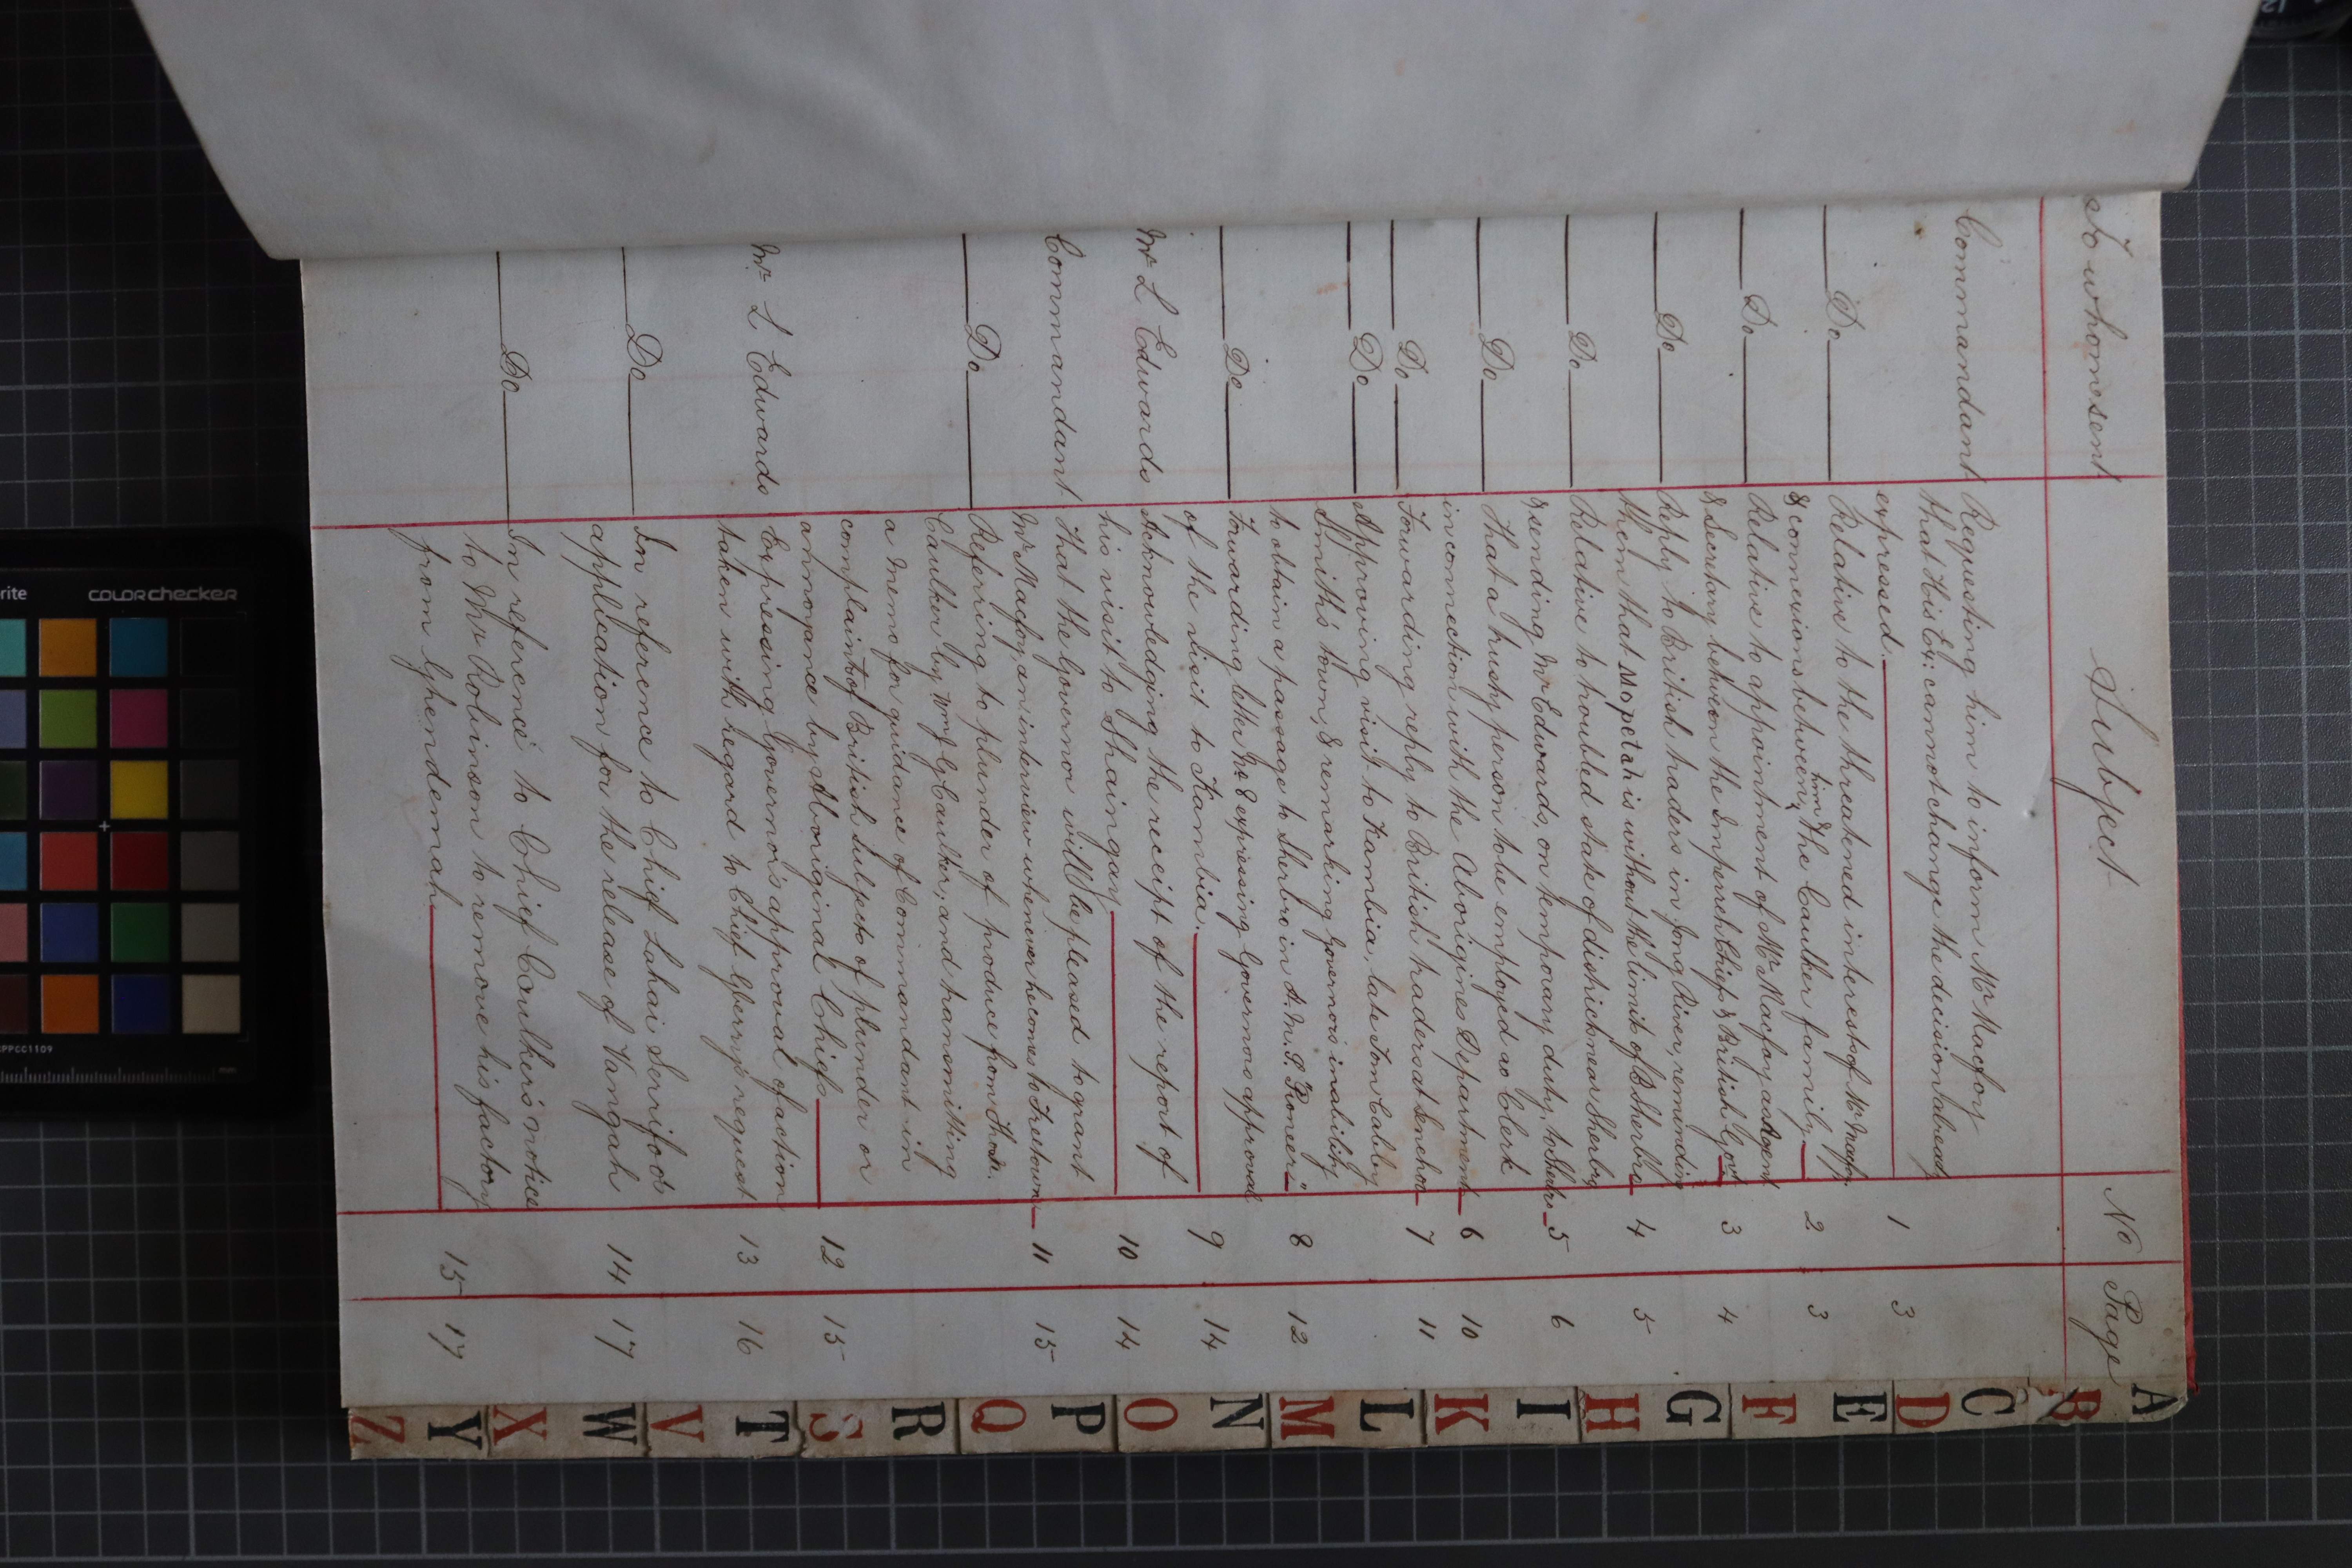 To whom sent Subject No Page
Commandant Requesting him to inform Mr Macfoy
that His Ex: cannot change the decision already
expressed. 1 3
Do Relative to the threatened interests of Mr Macfoy
& connexions between him & the Caulker family 2 3
Do Relative to appointment of Mr Macfoy as Agent
& Secretary between the Imperreh Chiefs & British Govt 3 4
Do Reply to British traders in Jong River, reminding
them that Mopetah is without the limits of B Sherbro 4 5
Do Relative to troubled state of districts near Sherbro
& sending Mr Edwards, on temporary duty, to Sherbro 5 6
Do That a trusty person to be employed as Clerk
in connection with the Aborigines Department 6 10
Do Forwarding reply to British traders at Senehoo 7 11
Do Approving visit to Kambia, late Tom Cabby
Smith's town, & remarking Governor's inability
to obtain a passage to Sherbro in S. M. S. "Pioneer" 8 12
Do Forwarding letter No 8 expressing Governors approval
of the visit to Kambia. 9 14
Mr L Edwards Acknowledging the receipt of the report of
his visit to Shaingay 10 14
Commandant That the Governor will be pleased to grant
Mr Macfoy an interview whenever he comes to Freetown 11 15
Do Referring to plunder of produce from
Caulker by Wm G Caulker, and transmitting
a memo for guidance of Commandant in
complaints of British subjects of plunder or
annoyance by Aboriginal Chiefs 12 15
Mr L Edwards Expressing Governor's approval of action
taken with regard to Chief Gberry's request 13 16
Do In reference to Chief Lahai Serrifoo's
application for the release of Vangah 14 17
Do In reference to Chief Caulker's notice
to Mr Robinson to remove his factory
from Ghendemah 15 17
A
B
C
D
E
F
G
H
I
K
L
M
N
O
P
Q
R
S
T
V
W
X
Y
Z
rite COLORchecker
PPCC1109